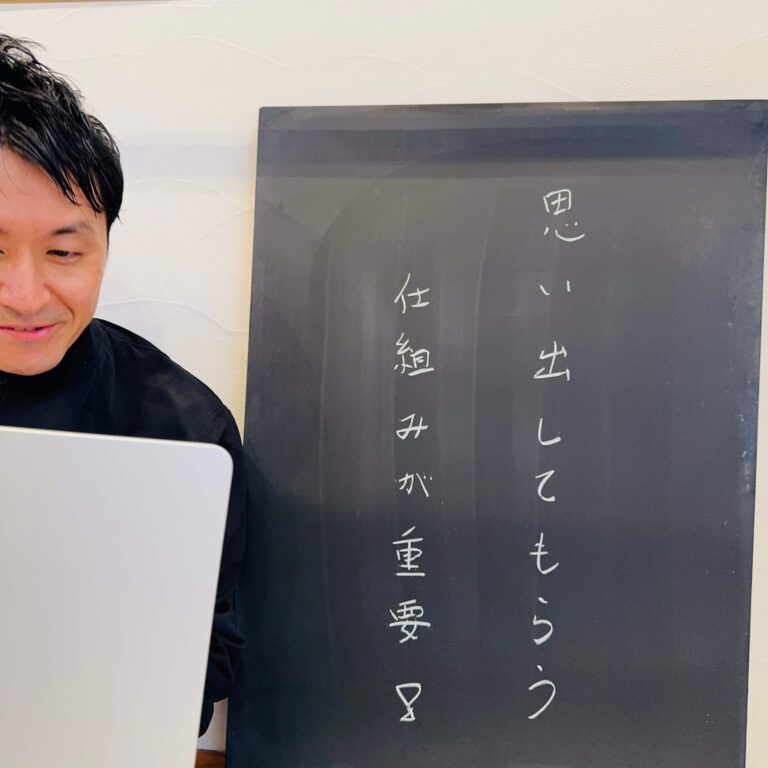 思い出してもらう
仕組みが重要！